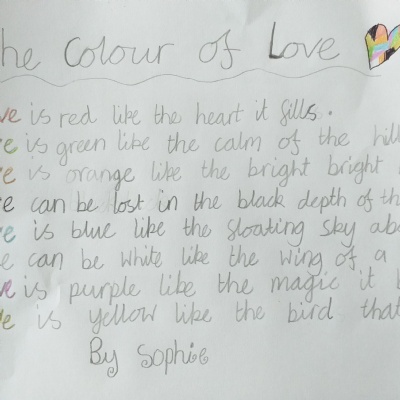 he Colour of Love
ve is red like the heart it fills.
ve is green like the calm of the hill
ve is orange like the bright bright
ve can be lost in the black depth of th
ve is blue like the floating sky abo
e can be white like the wing of a
ve is purple like the magic it b
ve is yellow like the bird that
By Sophie